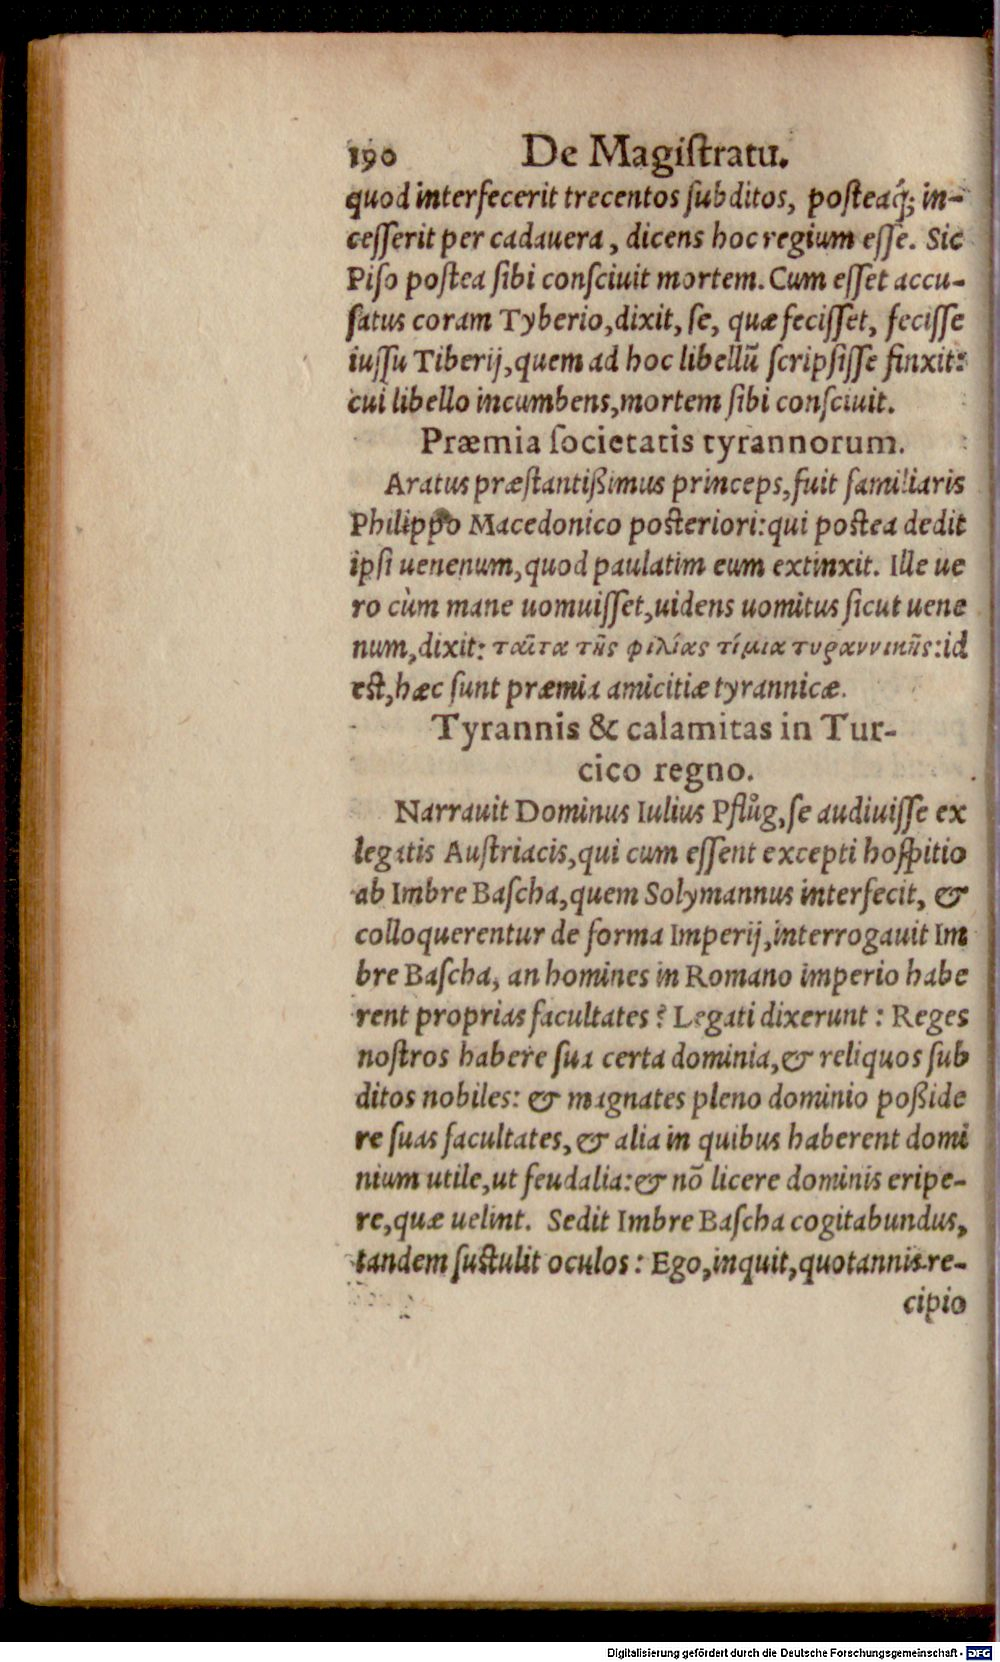 190 De Magiſtratu.
quod interfecerit trecentos ſubditos, poſteaq́; in-
ceſſerit per cadauera, dicens hoc regium eſſe. Sic
Piſo poſtea ſibi conſciuit mortem. Cum eſſet accu-
ſatus coram Tyberio, dixit, ſe, quæ feciſſet, feciſſe
iuſſu Tiberij, quem ad hoc libellũ ſcripſiſſe finxit:
cui libello incumbens, mortem ſibi conſciuit.
Præmia ſocietatis tyrannorum.
Aratus præſtantißimus princeps, fuit familiaris
Philippo Macedonico poſteriori: qui poſtea dedit
ipſi uenenum, quod paulatim eum extinxit. Ille ue
ro cùm mane uomuiſſet, uidens uomitus ſicut uene
num, dixit: ταῦτα τῆς φιλίας τίμια τυραννικῆς: id
eſt, hæc ſunt præmia amicitiæ tyrannicæ.
Tyrannis & calamitas in Tur-
cico regno.
Narrauit Dominus Iulius Pflůg, ſe audiuiſſe ex
legatis Auſtriacis, qui cum eſſent excepti hoſpitio
ab Imbre Baſcha, quem Solymannus interfecit, &
colloquerentur de forma Imperij, interrogauit Im
bre Baſcha, an homines in Romano imperio habe
rent proprias facultates? Legati dixerunt: Reges
noſtros habere ſua certa dominia, & reliquos ſub
ditos nobiles: & magnates pleno dominio poßide
re ſuas facultates, & alia in quibus haberent domi
nium utile, ut feudalia: & nõ licere dominis eripe-
re, quæ uelint. Sedit Imbre Baſcha cogitabundus,
tandem ſuſtulit oculos: Ego, inquit, quotannis re-
cipio
Digitalisierung gefördert durch die Deutsche Forschungsgemeinschaft - DFG